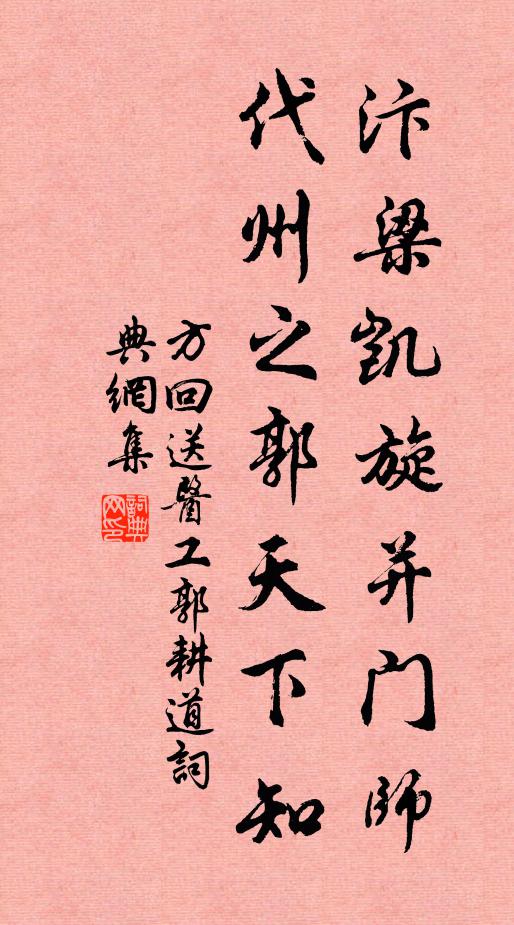 汴梁凱旋并門師
代州之郭天下知
方回送醫工郭耕道詞
典網集
詞典网印